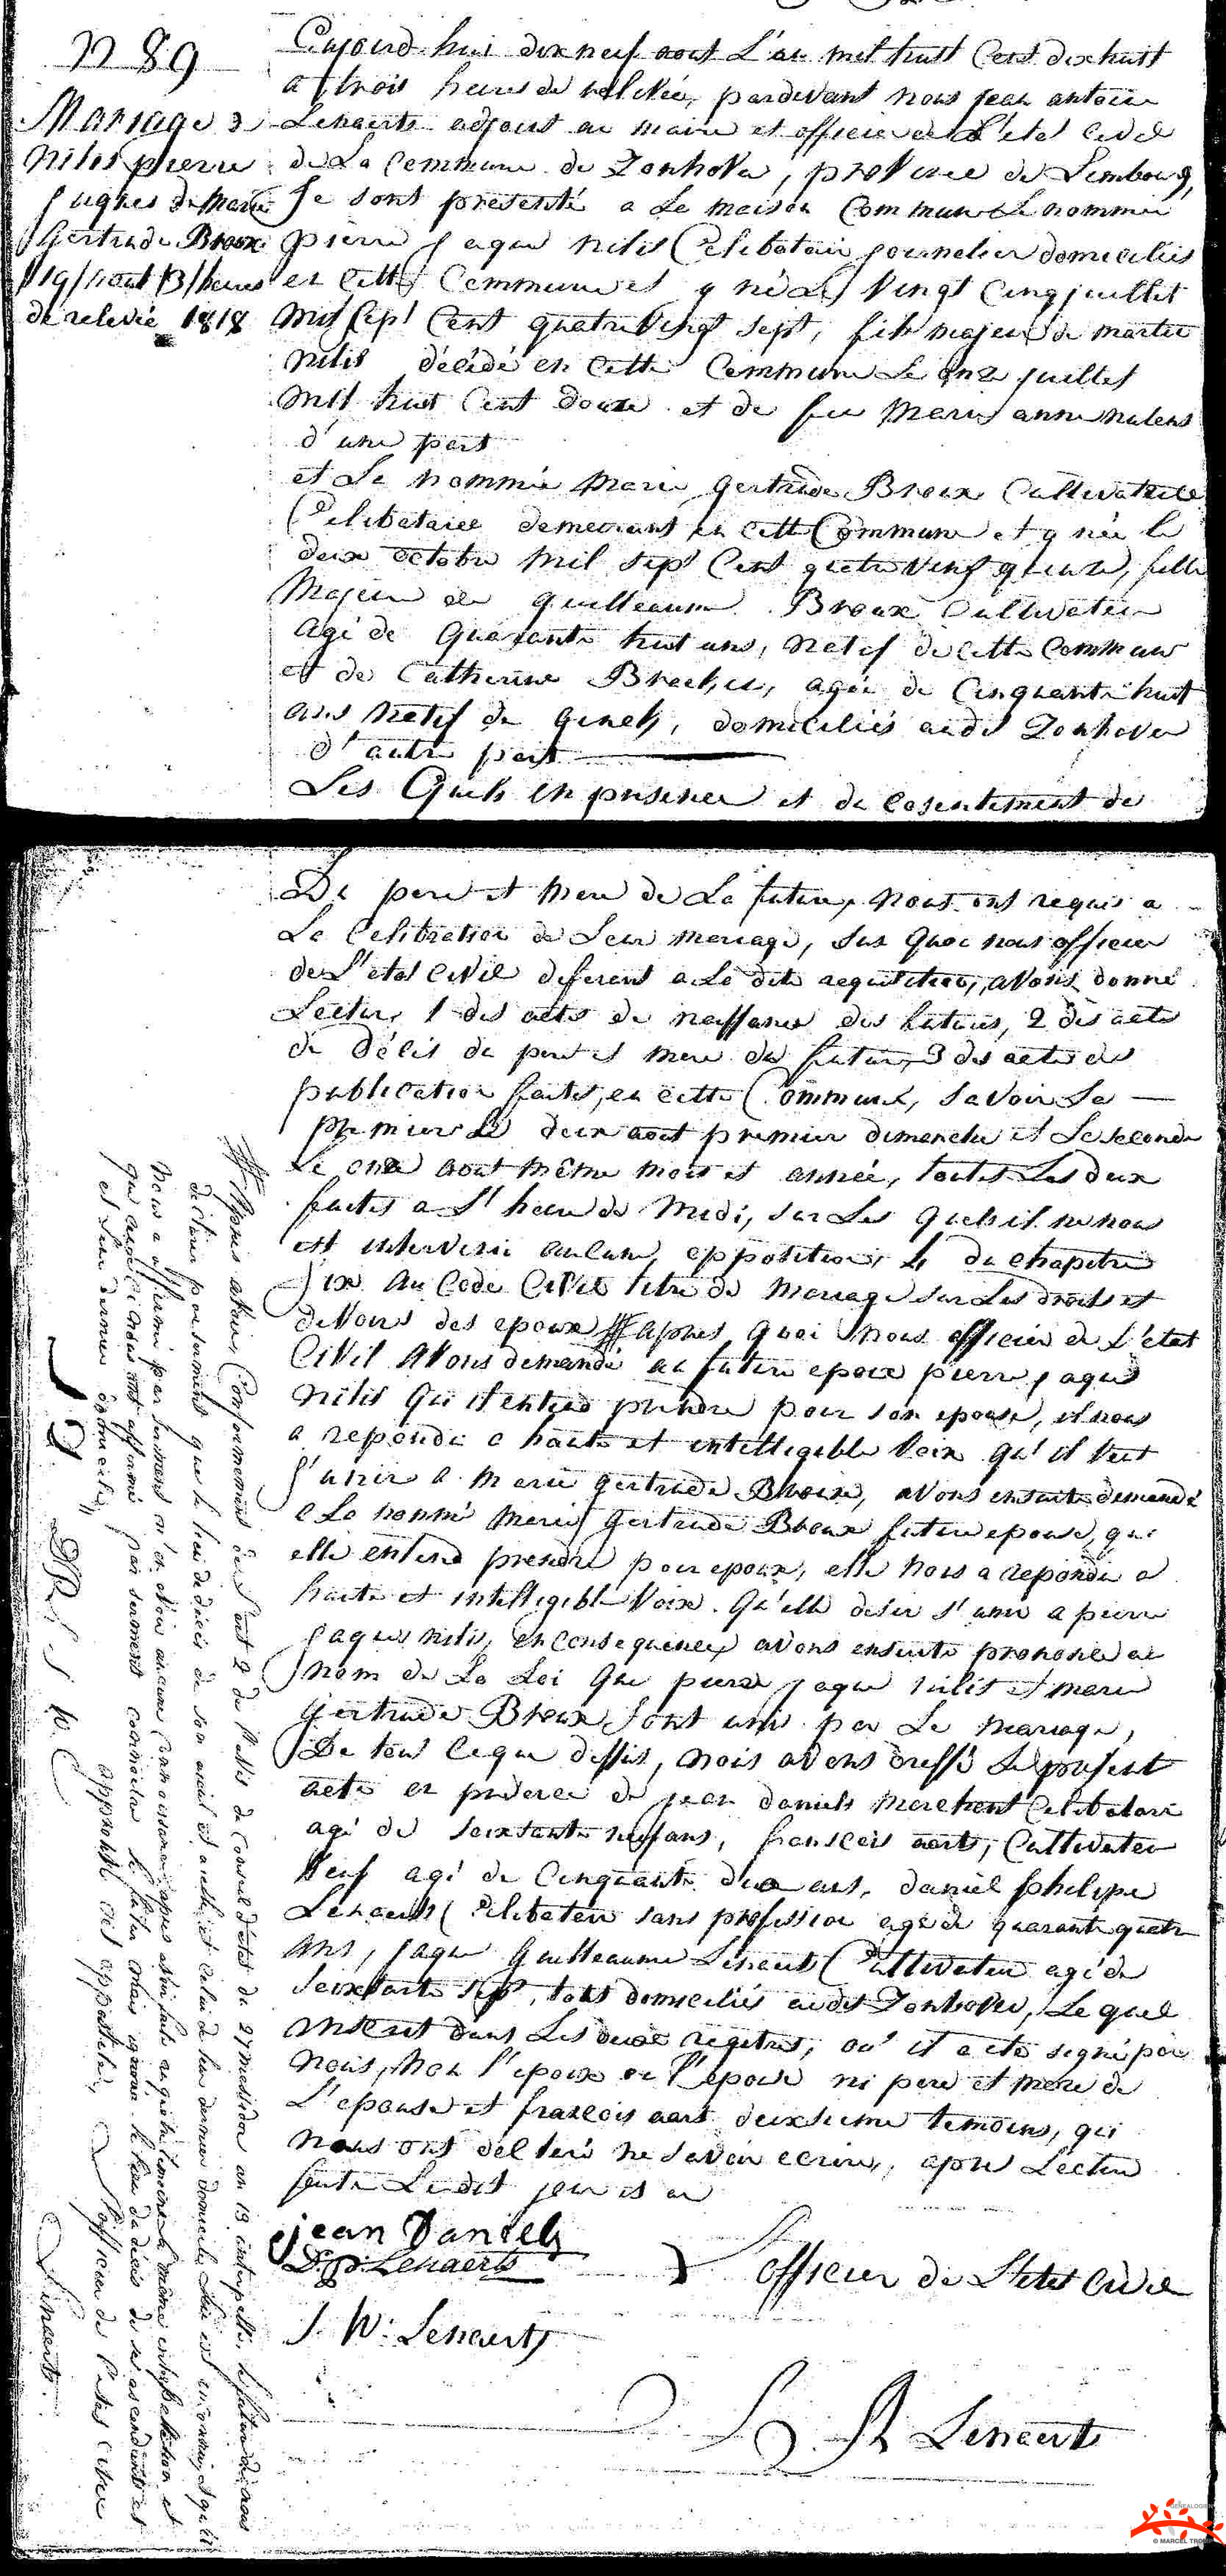 N 89
Mariage de
Nilis pierre
jaques & Marie
Gertrude Broux
19/août/3/heures
de relevée 1818
Cujourd-hui dix neuf aout L'an mil huit Cent dix huit
a trois heures de relevée, pardevant nous jean antoine
Lenaerts adjoint au maire et officier de L'etat Civil
de La Commune de Zonhoven, province de Limbourg,
se sont presenté a La maison Commune Le nommé
pierre jaque nilis Celibatair journelier domiciliés
en cette Commune et y né Le Vingt Cinq juillet
Mil sept Cent quatre Vingt sept, fils majeur de martin
nilis décédé en Cette Commune Le onze juillet
mil huit Cent douze et de feu Marie anne nulens
d'une part
et La nommée Marie gertrude Broux Cultivatrice
Celibataire demeurant en cette Commune et y née le
deux octobre Mil sept Cent quatre Vingt quinze, fille
Majeur de guilleaume Broux Cultivateur
agé de quarante huit ans, natif de cette Commune
et de Catherine Breekers, agée de Cinquante huit
ans natif de genck, domiciliés audit Zonhoven
d'autre part
Les Quels en presence et de Cosentement de
De pere et mere de La future, nous ont requis a
La Celibration de Leur mariage, sur Quoi nous officier
de L'etat Civil deferent a La dite requisition, avons donné
Lecture 1 des actes de naissance des futurs, 2 des actes
de Décés de pere et mere du futur, 3 des actes de
publication faites, en cette Commune, savoir La
premier Le deux aout premier dimenche et La seconde
Le onze aout même mois et année, toutes Les deux
faites a L'heure de Midi, sur Les Quels il ne nous
est intervenu aucune opposition, 4 du chapitre
six du Code Civil titre du Mariage sur Les droits et
devoirs des epoux # apres Quoi nous officier de L'etat
Civil Avons demandé au futur epoux pierre jaques
nilis Qui il entend prendre pour son epouse, il nous
a repondu a haute et intelligible Voix qu'il veut
s'unir a Marie gertrude Broux, avons ensuite demandé
a La nommé Marie gertrude Broux future epouse, qui
elle entend prendre pour epoux, elle nous a repondu a
haute et intelligible Voix Qu'elle desir s'unir a pierre
jaques nilis, en Consequence avons ensuite prononcé au
nom de La Loi Que pierre jaque nilis et marie
gertrude Broux sont unis par Le mariage,
De tout Ceque dessus, nous avons dressé Le present
acte en presence de jean daniels Marchent Celibatair
agé de soixante neuf ans, franscois aerts, Cultivateur
Veuf agé de Cinquante deux ans, daniel philippe
Lenaerts Celibataire sans profession agé de quarante quatre
ans, jaque Guilleaume Lenaerts Cultivateur agé de
soixante sept, tous domiciliés audit Zonhoven, Le quel
inseré dans Les deux registres, ou il a eté signé par
nous, Non l'epoux ni l'epouse ni pere et mere de
L'epouse et francois aert deuxieme temoins, qui
nous ont declaré ne savoir ecrire, apres Lecture
faite Ledit jour et an
jean Daniels
D. p. Lenaerts
J. W. Lenaerts
L'officier de L'etat Civil
J A Lenaerts
# apres avoir Conformement de L'avis de Conseil d'etat du 27 messidor an 13 interpellé, le futur
declarer par serment que le lieu de décés de son aieul et celui de leur dernier domicile
nous a affirmé par serment n'en avoir aucune connaissance, apres avoir fait aux quatre temoins la même interpellation et
qui aussi ont affirmé par serment connaitre le futur mais ignorer le lieu du décés de ses ascendants et
et leur dernier domicile,
approuvé L'officier de L'etat Civil
Lenaerts
GENEALOGIE
© MARCEL TROMP